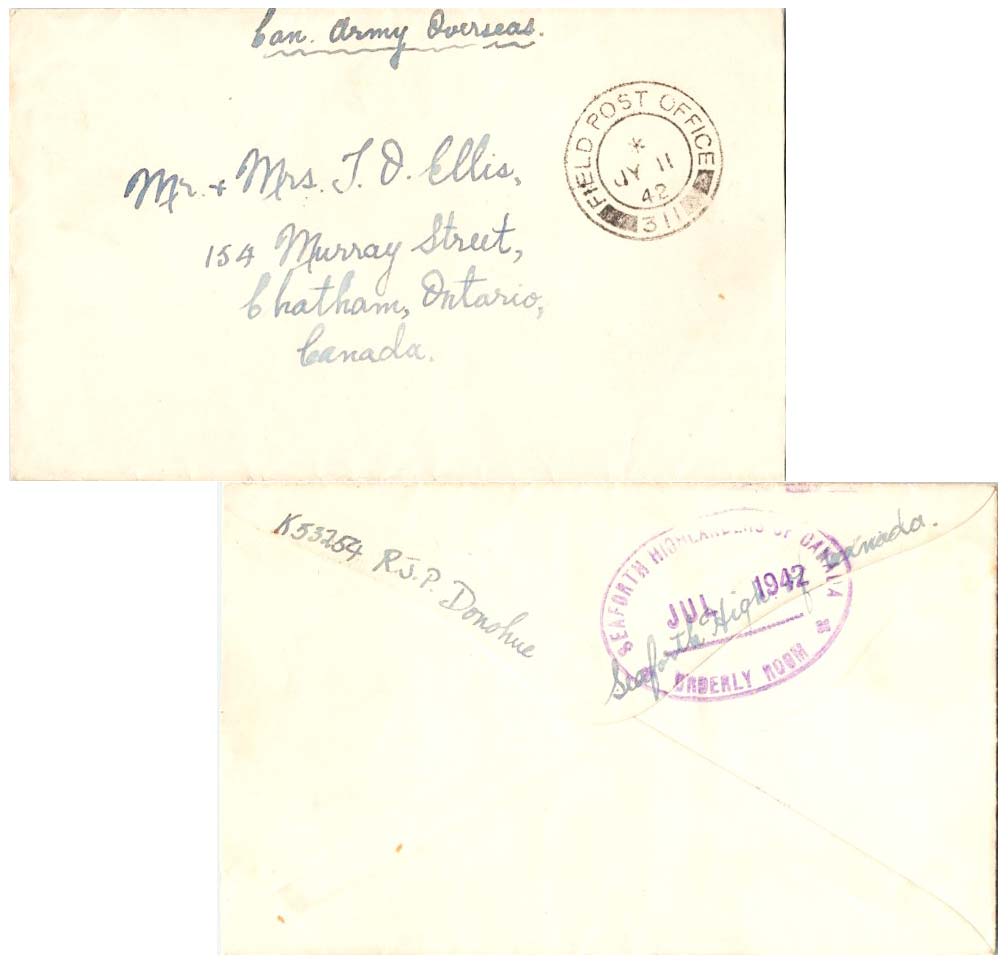 Can. Army Overseas.
FIELD POST OFFICE
*
JY 11
42
311
Mr. + Mrs. T. D. Ellis,
154 Murray Street,
Chatham, Ontario,
Canada.
K53254 R.J.P. Donohue
SEAFORTH HIGHLANDERS OF CANADA
JUL 1942
ORDERLY ROOM
Seaforth High. of Canada.